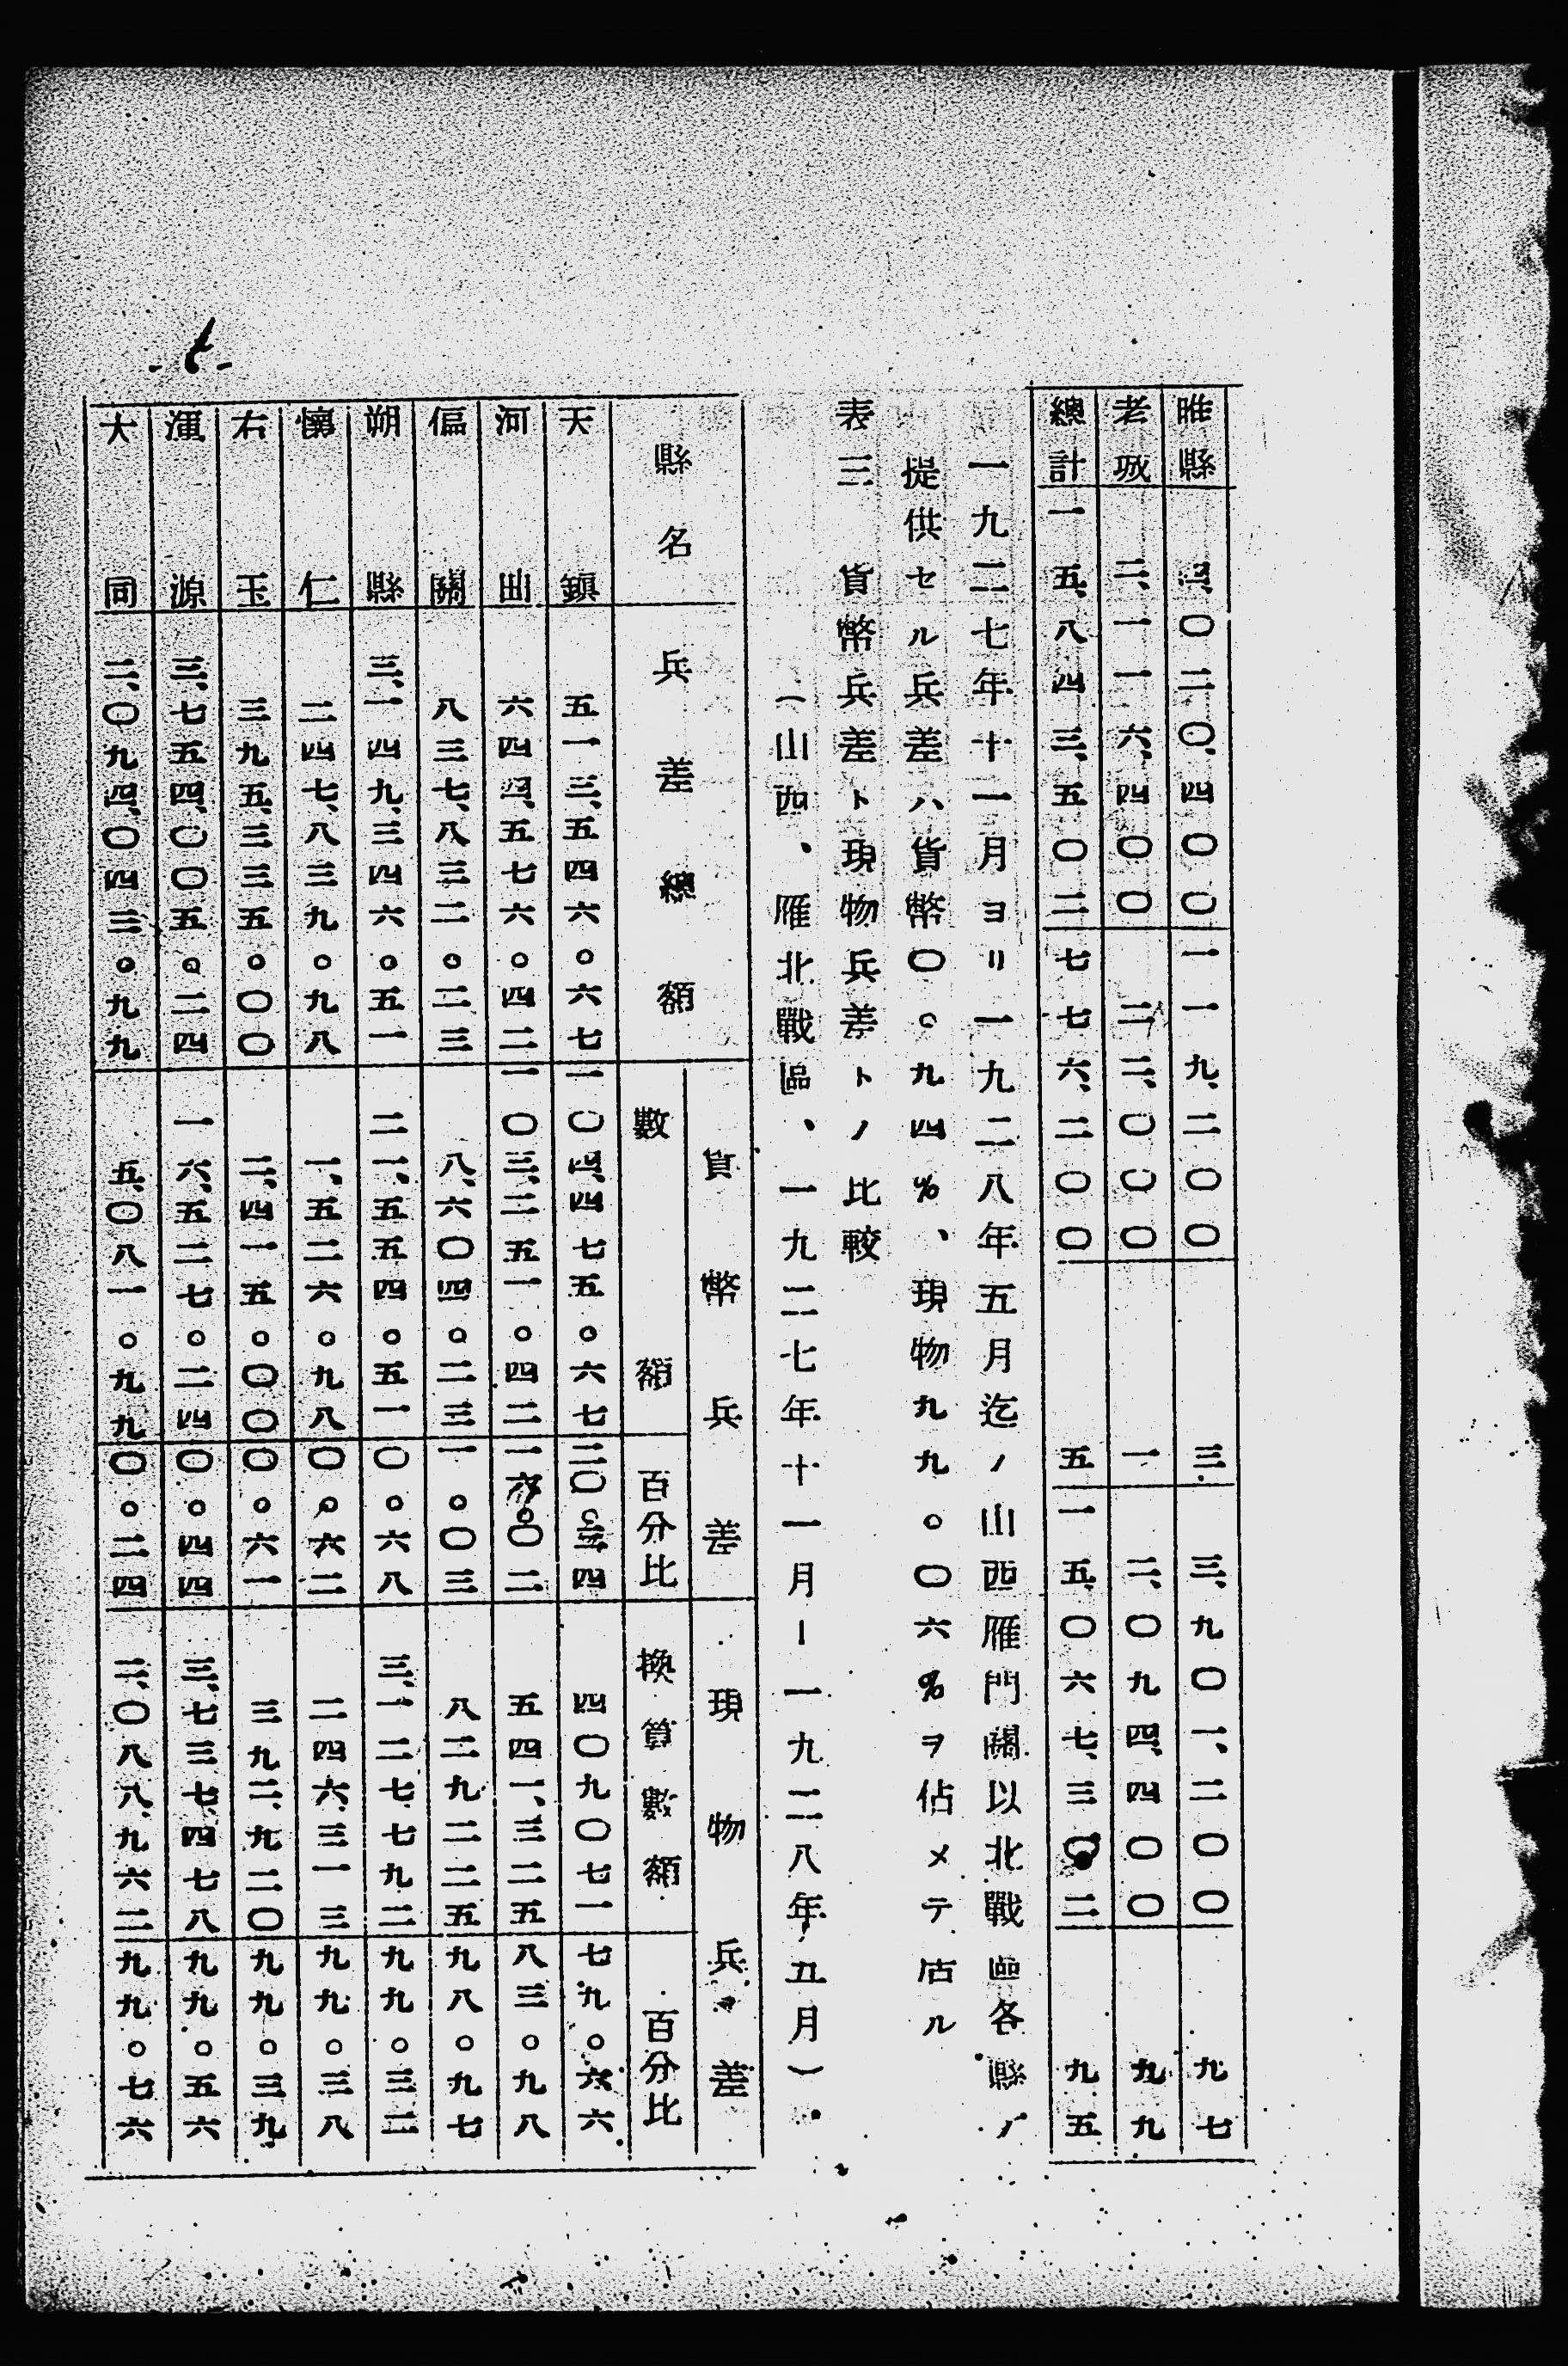 睢縣 四、〇二〇、四〇〇 一一九、二〇〇 三 三、九〇一、二〇〇 九七
老城 二、一一六、四〇〇 二二、〇〇〇 一 二、〇九四、四〇〇 九九
總計 一五、八四三、五〇二 七七六、二〇〇 五 一五、〇六七、三〇二 九五
一九二七年十一月ヨリ一九二八年五月迄ノ山西雁門關以北戰區各縣ノ
提供セル兵差ハ貨幣〇。九四%、現物九九。〇六%ヲ佔メテ居ル
表三 貨幣兵差ト現物兵差トノ比較
(山西、雁北戰區、一九二七年十一月ー一九二八年五月)
縣名 兵差總額 貨幣兵差 現物兵差
數額 百分比 換算數額 百分比
天鎮 五一三、五四六。六七 一〇四、四七五。六七 二〇。三四 四〇九〇七一 七九。六六
河曲 六四四、五七六。四二 一〇三、二五一。四二 一六。〇二 五四一、三二五 八三。九八
偏關 八三七、八三二。二三 八、六〇四。二三 一。〇三 八二九二二五 九八。九七
朔縣 三、一四九、三四六。五一 二一、五五四。五一 〇。六八 三、一二七七九二 九九。三二
懷仁 二四七、八三九。九八 一、五二六。九八 〇。六二 二四六、三一三 九九。三八
右玉 三九五、三三五。〇〇 二、四一五。〇〇 〇。六一 三九二、九二〇 九九。三九
渾源 三、七五四、〇〇五。二四 一六、五二七。二四 〇。四四 三、七三七、四七八 九九。五六
大同 二、〇九四、〇四三。九九 五、〇八一。九九 〇。二四 二、〇八八、九六二 九九。七六